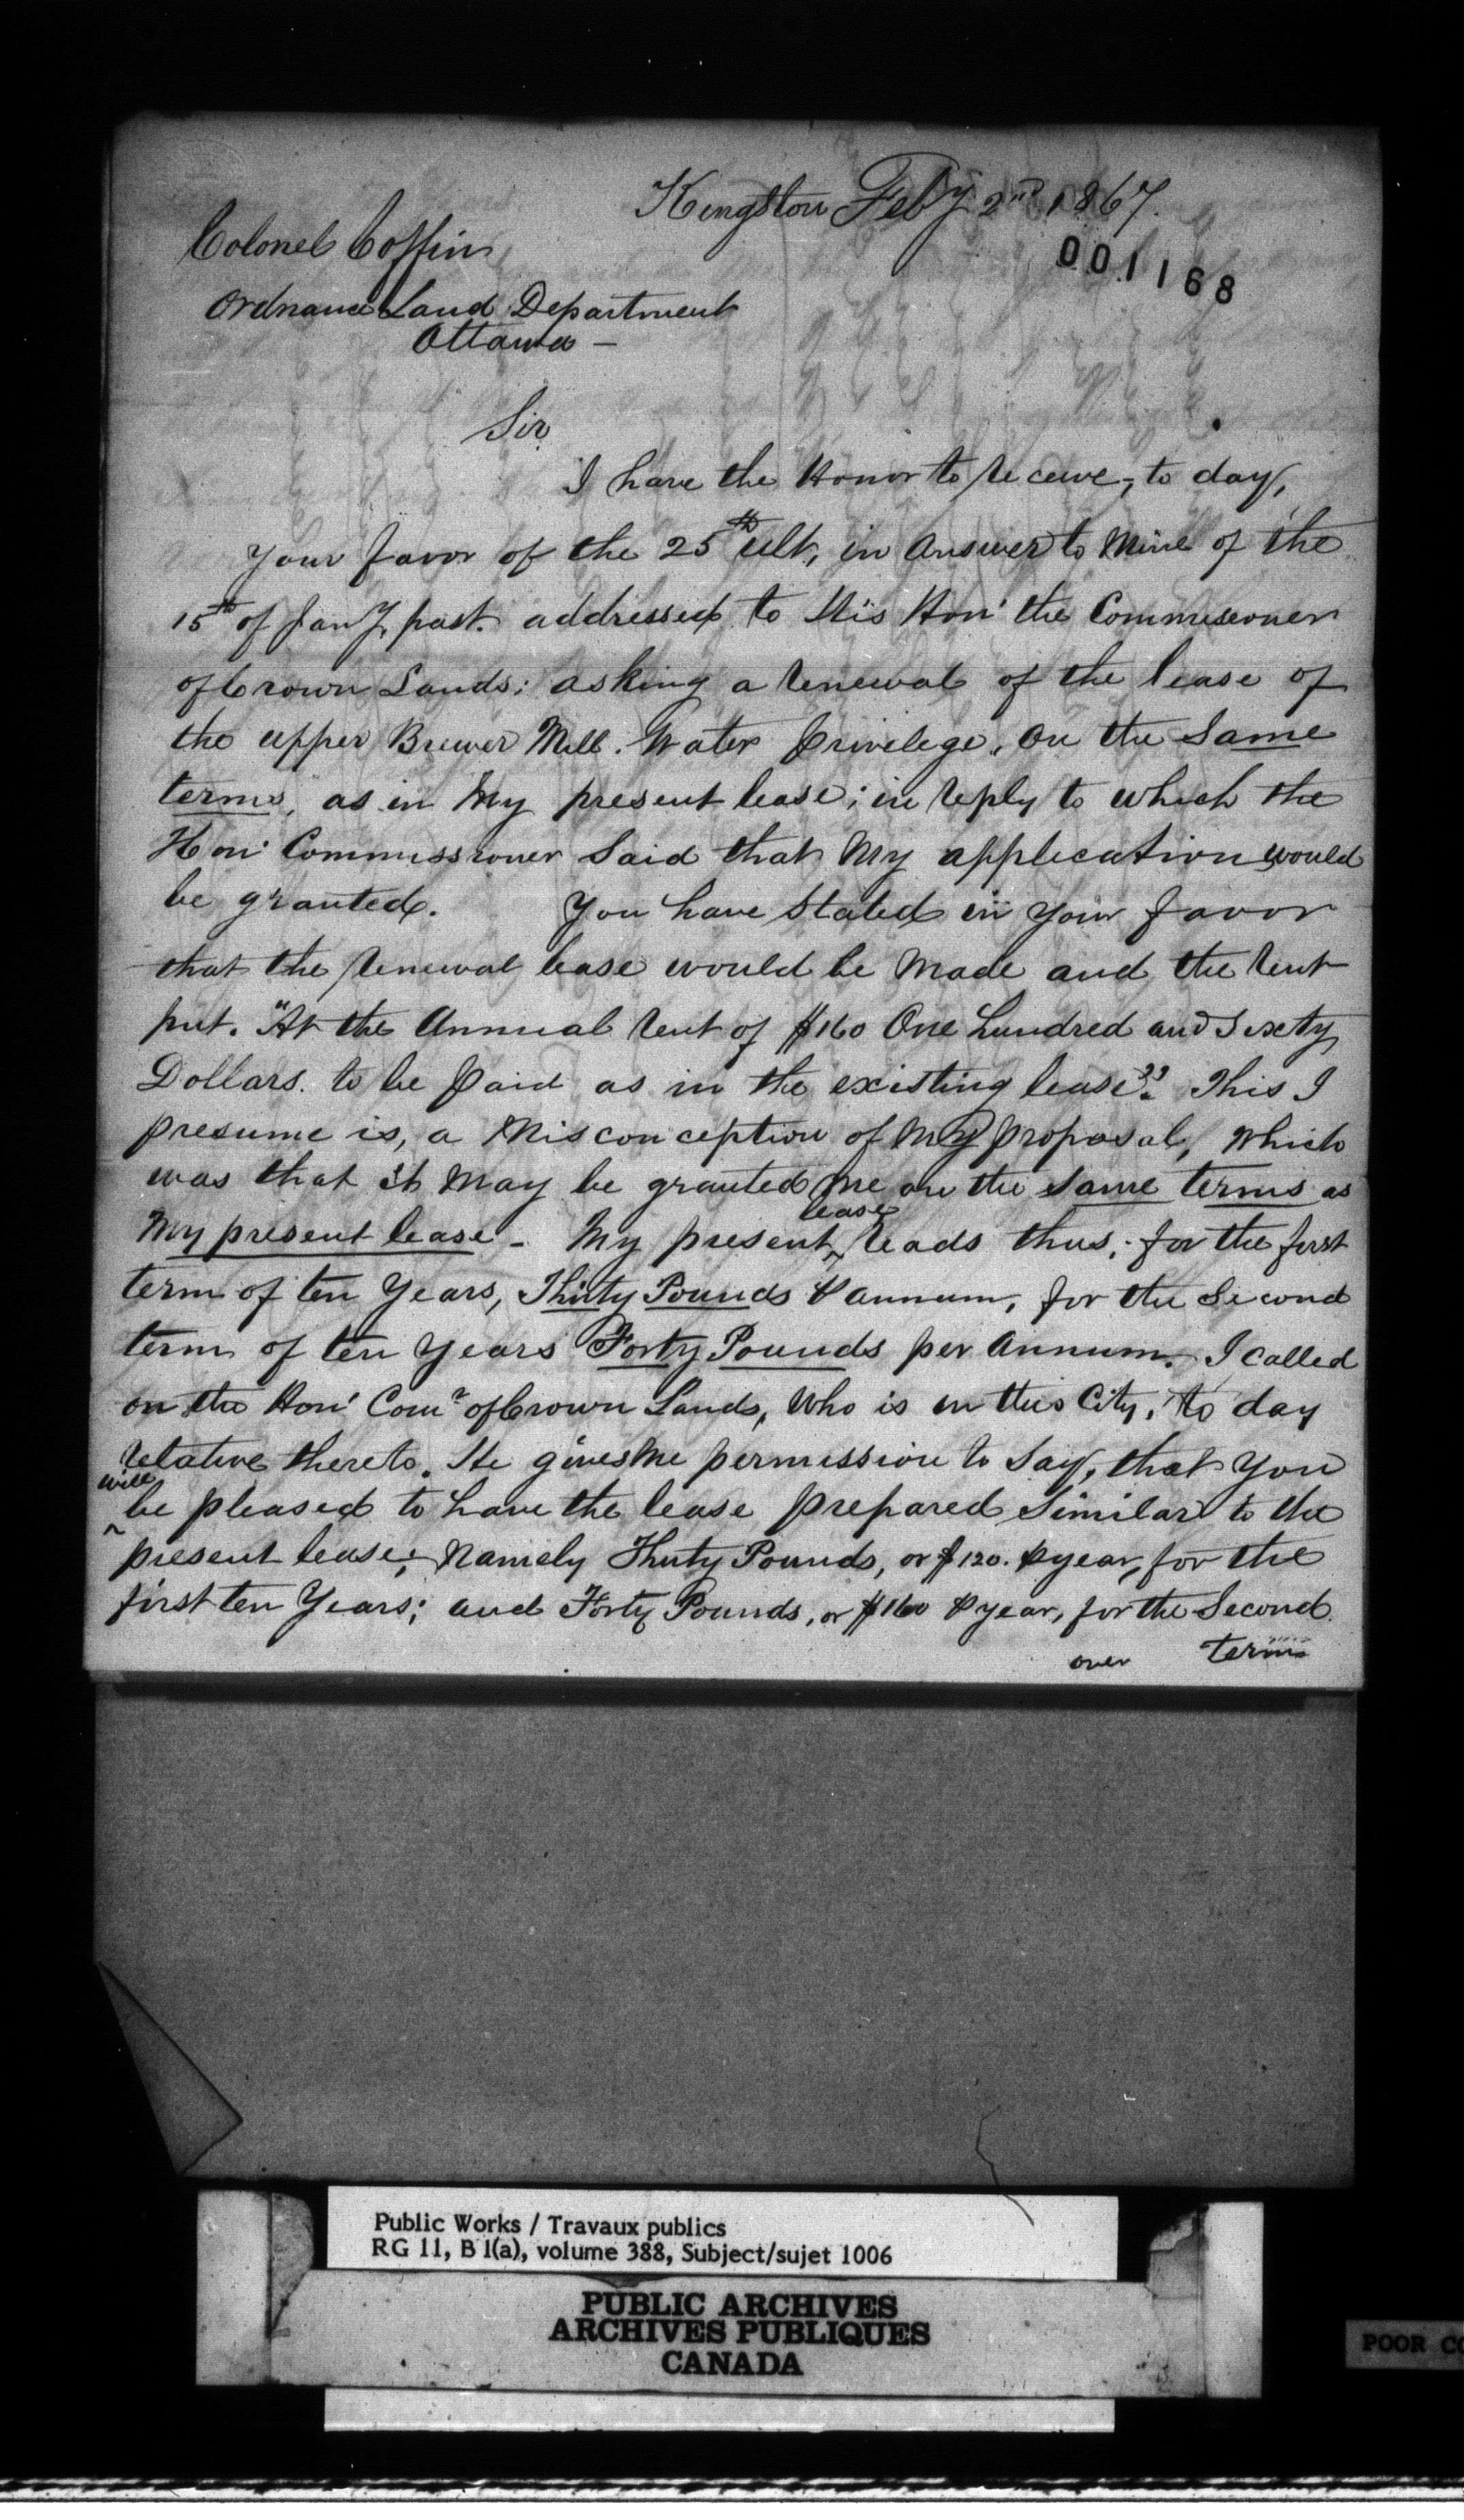 Kingston Feby 2nd 1867.
001168
Colonel Coffin
Ordnance Land Department
Ottawa —
Sir
I have the Honor to receive, to day,
Your favor of the 25th ult, in Answer to Mine of the
15th of Jany, past. addressed to His Hon' the Commissioner
of Crown Lands; asking a renewal of the lease of
the upper Brewer Mill. Water Privilege, on the Same
terms, as in My present lease; in reply to which the
Hon' Commissioner Said that My application would
be granted. You have Stated in Your favor
that the renewal lease would be Made and the rent
put. "At the Annual rent of $160 One hundred and Sixty
Dollars. to be Paid as in the existing lease". This I
presume is, a Misconception of My proposal, Which
was that it May be granted Me on the Same terms as
My present lease - My present lease reads thus; for the first
term of ten Years, Thirty Pounds ⅌ annum, for the Second
term of ten Years Forty Pounds per Annum. I called
on the Hon' Comr of Crown Lands, Who is in this City, to day
relative thereto. He gives Me permission to Say, that You
will be pleased to have the lease prepared Similar to the
present lease; Namely Thirty Pounds, or $120. ⅌ year, for the
first ten Years; and Forty Pounds, or $160 ⅌ year, for the Second
over term
Public Works / Travaux publics
RG 11, B 1(a), volume 388, Subject/sujet 1006
PUBLIC ARCHIVES
ARCHIVES PUBLIQUES
CANADA
POOR CO